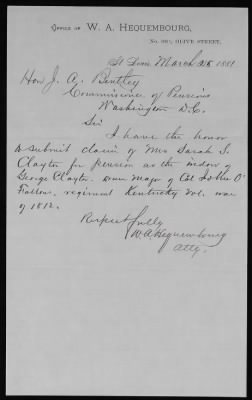 OFFICE OF W. A. HEQUEMBOURG,
OLIVE STREET.
St Louis March 28 1881.
Hon J. A. Bentley
Commissioner of Pensions
Washington D.C.
Sir
I have the honor
to submit claim of Mrs Sarah S.
Clayton for pension as the widow of
George Clayton. Major of Col John O'
Fallon, regiment Kentucky Vol. war
of 1812.
Respectfully
W. A. Hequembourg
Atty.